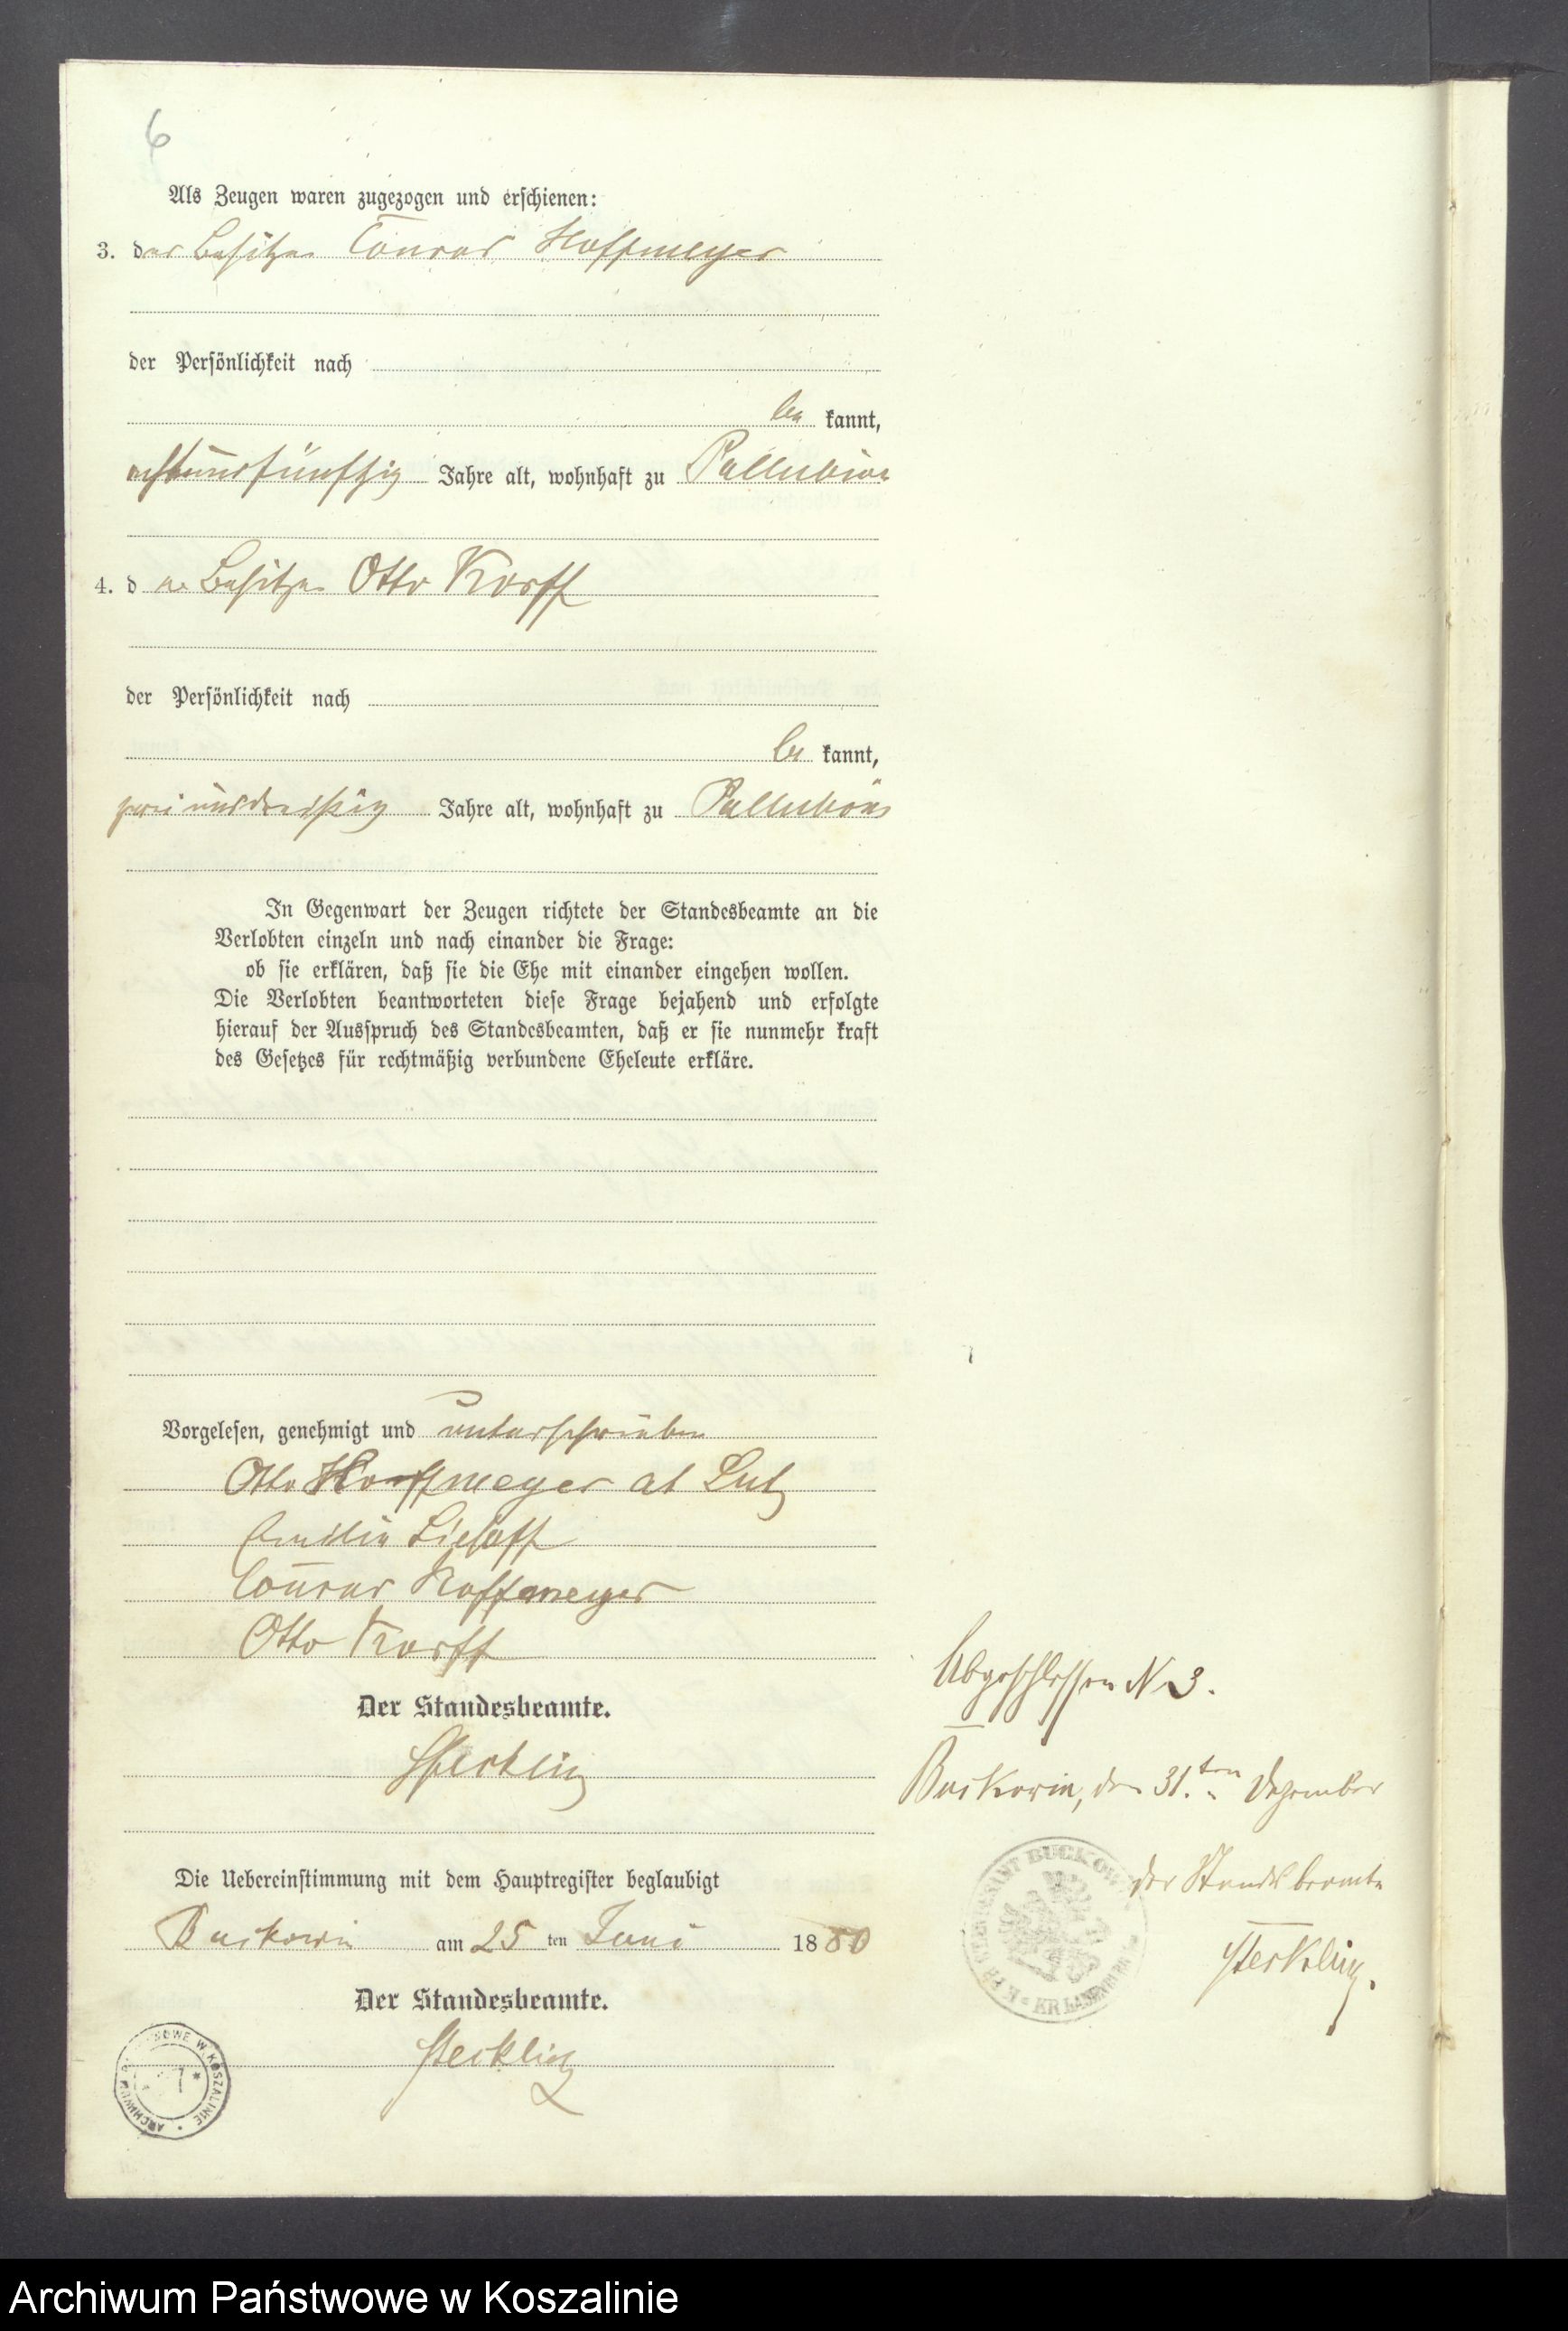 6
Als Zeugen waren zugezogen und erschienen:
3. der Besitzer Conrad Hoffmeyer
der Persönlichkeit nach
be kannt,
achtundfünfzig Jahre alt, wohnhaft zu Pallubin
4. d er Besitzer Otto Korff
der Persönlichkeit nach
be kannt,
zweiunddreißig Jahre alt, wohnhaft zu Pallubin
In Gegenwart der Zeugen richtete der Standesbeamte an die
Verlobten einzeln und nach einander die Frage:
ob sie erklären, daß sie die Ehe mit einander eingehen wollen.
Die Verlobten beantworteten diese Frage bejahend und erfolgte
hierauf der Ausspruch des Standesbeamten, daß er sie nunmehr kraft
des Gesetzes für rechtmäßig verbundene Eheleute erkläre.
Vorgelesen, genehmigt und unterschrieben
Otto Hoffmeyer
Emilie
Conrad Hoffmeyer
Otto Korff
Der Standesbeamte.
Steckling
Die Uebereinstimmung mit dem Hauptregister beglaubigt
Buckowin am 25 ten Juni 1880
Der Standesbeamte.
Steckling
Abgeschlossen N 3.
Buckowin, den 31.ten Dezember
der Standesbeamte
Steckling.
STANDESAMT BUCKOWIN KR LAUENBURG
ARCHIWUM W KOSZALINIE
Archiwum Państwowe w Koszalinie